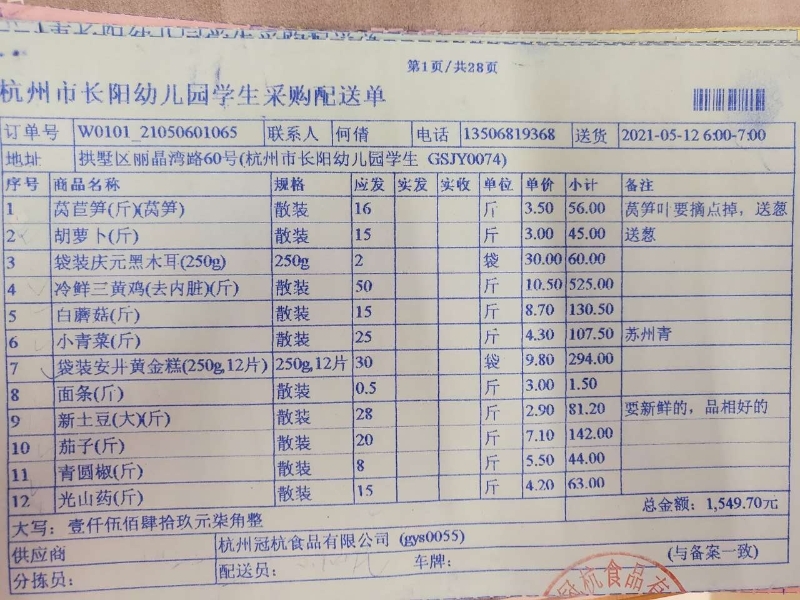 第1页/共28页
杭州市长阳幼儿园学生采购配送单
订单号 W0101_21050601065 联系人 何倩 电话 13506819368 送货 2021-05-12 6:00-7:00
地址 拱墅区丽晶湾路60号(杭州市长阳幼儿园学生 GSJY0074)
序号 商品名称 规格 应发 实发 实收 单位 单价 小计 备注
1 莴苣笋(斤)(莴笋) 散装 16 斤 3.50 56.00 莴笋叶要摘点掉，送葱
2 胡萝卜(斤) 散装 15 斤 3.00 45.00 送葱
3 袋装庆元黑木耳(250g) 250g 2 袋 30.00 60.00
4 冷鲜三黄鸡(去内脏)(斤) 散装 50 斤 10.50 525.00
5 白蘑菇(斤) 散装 15 斤 8.70 130.50
6 小青菜(斤) 散装 25 斤 4.30 107.50 苏州青
7 袋装安井黄金糕(250g,12片) 250g,12片 30 袋 9.80 294.00
8 面条(斤) 散装 0.5 斤 3.00 1.50
9 新土豆(大)(斤) 散装 28 斤 2.90 81.20 要新鲜的，品相好的
10 茄子(斤) 散装 20 斤 7.10 142.00
11 青圆椒(斤) 散装 8 斤 5.50 44.00
12 光山药(斤) 散装 15 斤 4.20 63.00
总金额：1,549.70元
大写：壹仟伍佰肆拾玖元柒角整
供应商 杭州冠杭食品有限公司 (gys0055)
分拣员： 配送员： 车牌： (与备案一致)
冠杭食品有